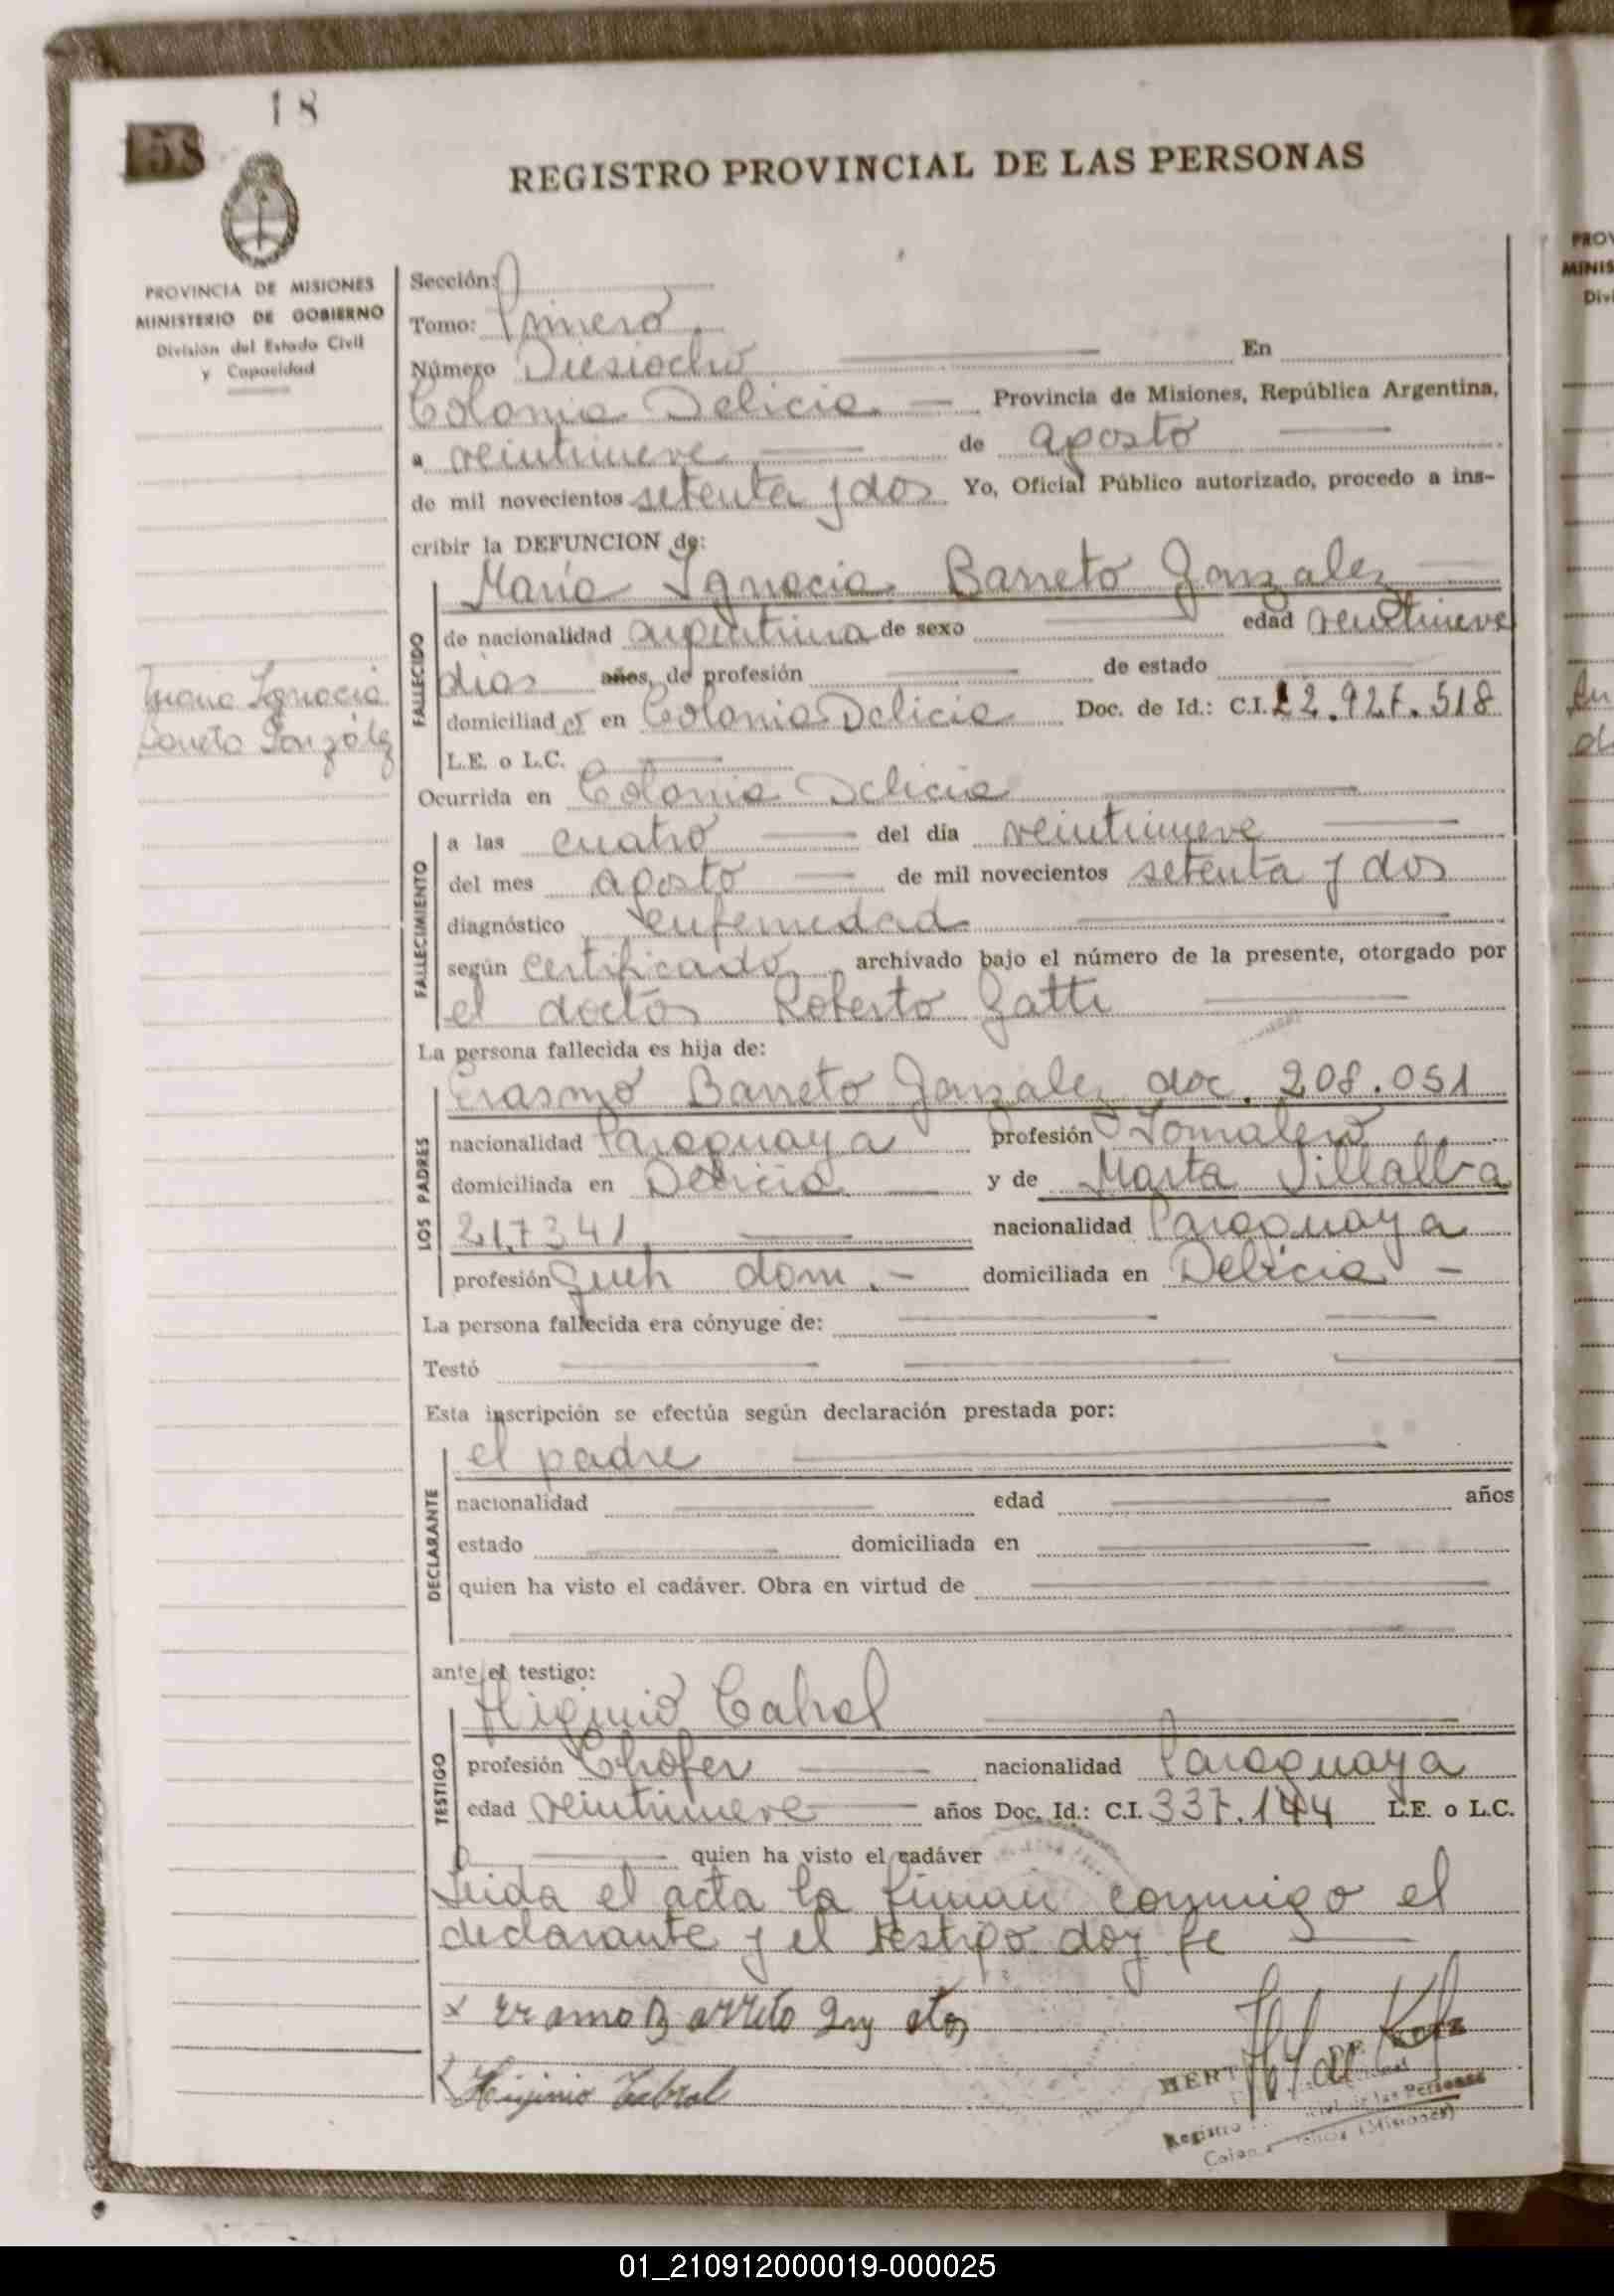 18
158
REGISTRO PROVINCIAL DE LAS PERSONAS
PROVINCIA DE MISIONES
MINISTERIO DE GOBIERNO
División del Estado Civil
y Capacidad
Maria Ignacia
Barreto González
Sección:
Tomo: Primero
Número Diesiocho En
Colonia Delicia Provincia de Misiones, República Argentina,
a veintinueve de agosto
de mil novecientos setenta y dos Yo, Oficial Público autorizado, procedo a ins-
cribir la DEFUNCION de:
María Ignacia Barreto Gonzalez
FALLECIDO
de nacionalidad argentina de sexo edad veintinueve
dias años, de profesión de estado
domiciliad a en Colonia Delicia Doc. de Id.: C.I. 22.927.518
L.E. o L.C.
Ocurrida en Colonia Delicia
FALLECIMIENTO
a las cuatro del día veintinueve
del mes agosto de mil novecientos setenta y dos
diagnóstico enfermedad
según certificado archivado bajo el número de la presente, otorgado por
el doctor Roberto Gatti
La persona fallecida es hija de:
LOS PADRES
Erasmo Barreto Gonzalez doc. 208.051
nacionalidad Paraguaya profesión Jornalero
domiciliada en Delicia y de Marta Villalba
217341 nacionalidad Paraguaya
profesión Queh dom. - domiciliada en Delicia -
La persona fallecida era cónyuge de:
Testó
Esta inscripción se efectúa según declaración prestada por:
DECLARANTE
el padre
nacionalidad edad años
estado domiciliada en
quien ha visto el cadáver. Obra en virtud de
ante el testigo:
TESTIGO
Higinio Cabral
profesión Chofer nacionalidad Paraguaya
edad veintinueve años Doc. Id.: C.I. 337.144 L.E. o L.C.
quien ha visto el cadáver
Leida el acta la firman conmigo el
declarante y el testigo doy fe
x Eramo Barreto
Higinio Cabral
Registro de las Personas
(Misiones)
01_210912000019-000025